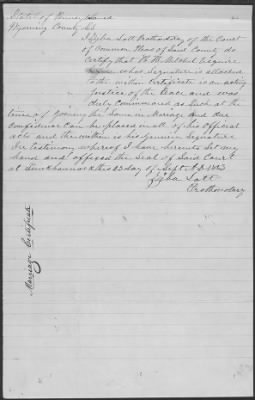 State of Pennsylvania
Wyoming County ss
I Ziba Lott Prothonotary of the Court
of Common Pleas of Said County do
Certify that Esquire
whose Signature is attached
to the within Certificate is an acting
Justice of the Peace and was
duly Commissioned as Such at the
time of Joining the Same in Marriage and due
Confidence Can be placed in all of his Official
acts and the within is his Genuine Signature
In Testimony whereof I have hereunto Set my
hand and affixed the Seal of Said Court
at Tunkhannock this 23 day of Sept A.D.
Ziba Lott
Prothonotary
Marriage Certificate